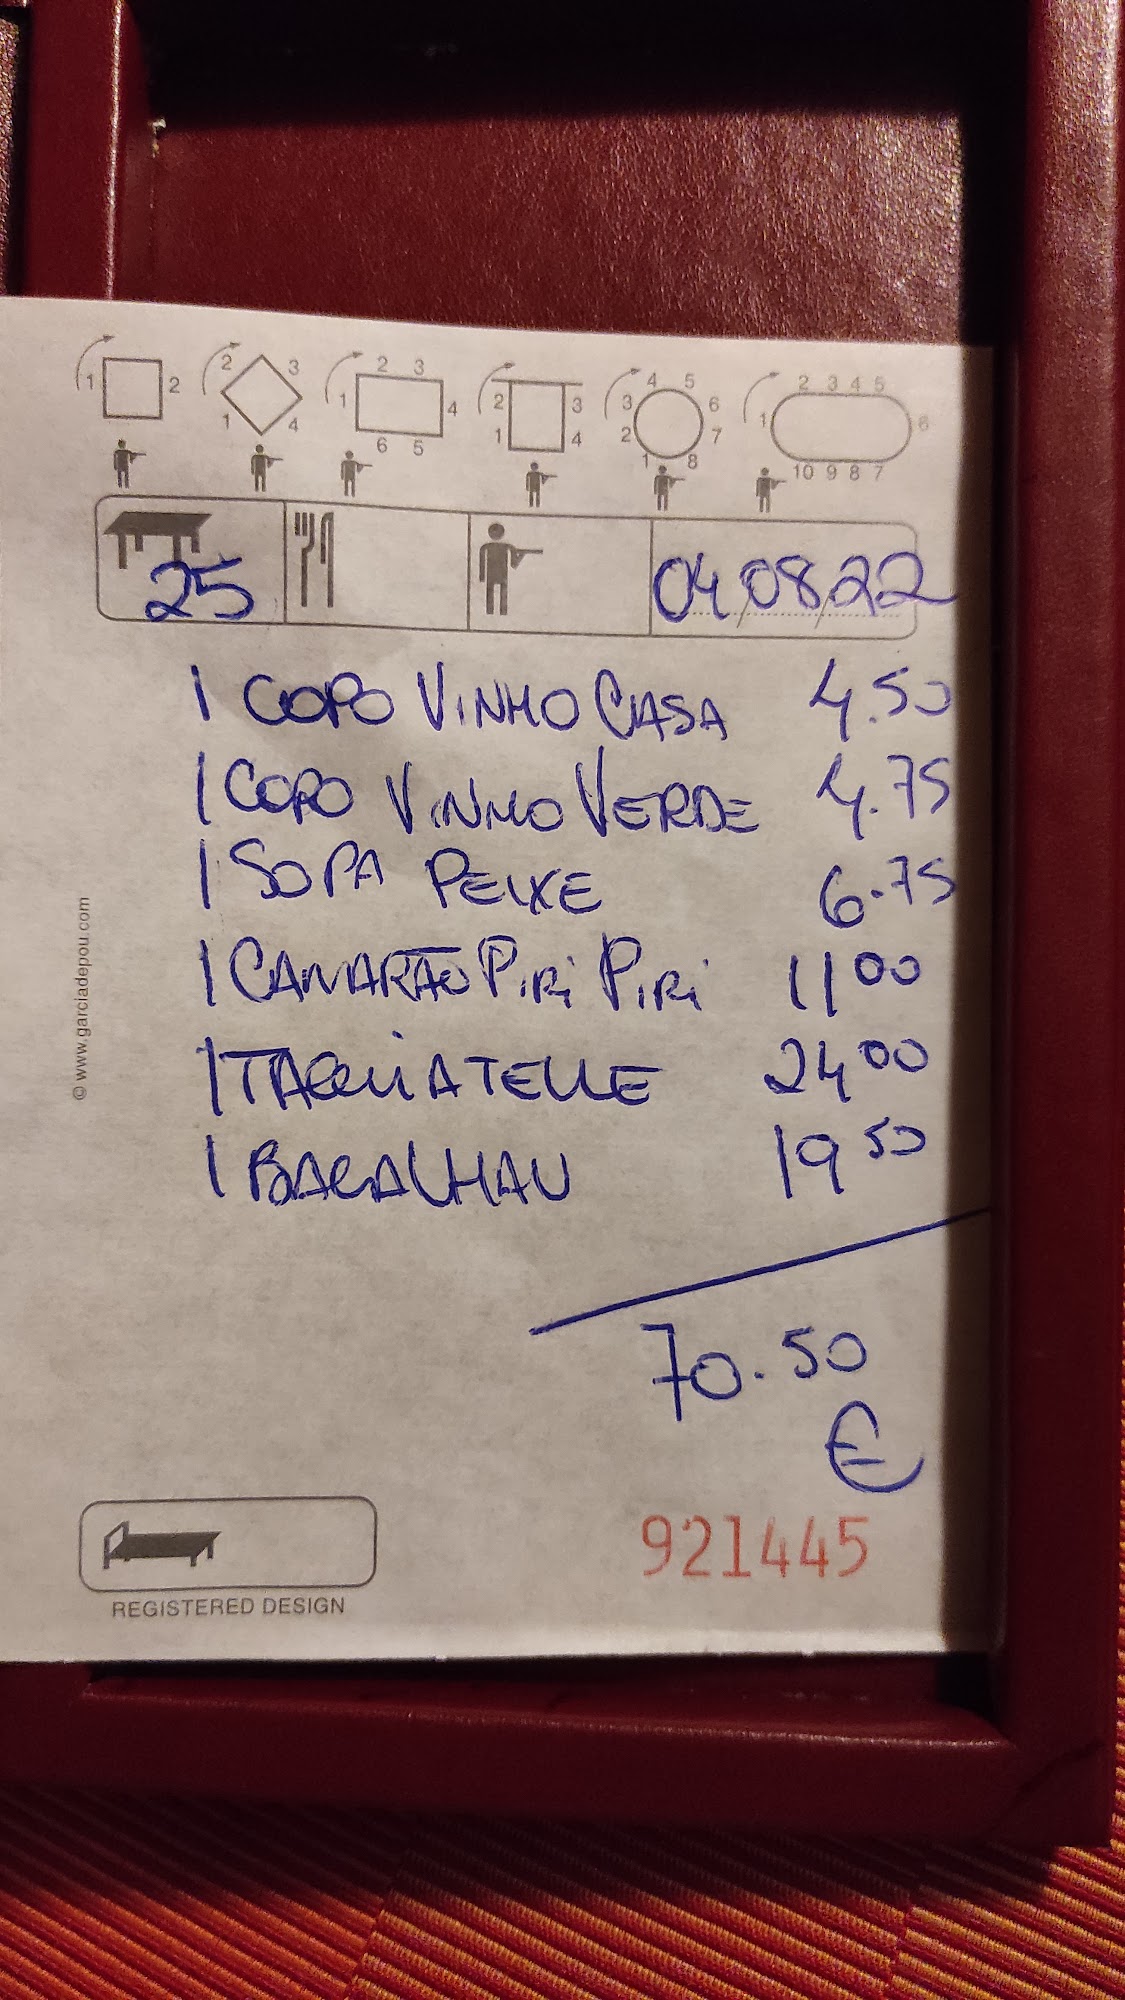 1 2
2 3 1 4
2 3 1 4 6 5
2 3 1 4
4 5 3 6 2 7 1 8
2 3 4 5 1 6 10 9 8 7
25 04/08/22
1 COPO VINHO CASA 4.50
1 COPO VINHO VERDE 4.75
1 SOPA PEIXE 6.75
1 CAMARÃO PIRI PIRI 11 00
1 TAGLIATELLE 24 00
1 BACALHAU 19 50
70.50
€
921445
REGISTERED DESIGN
© www.garciadepou.com